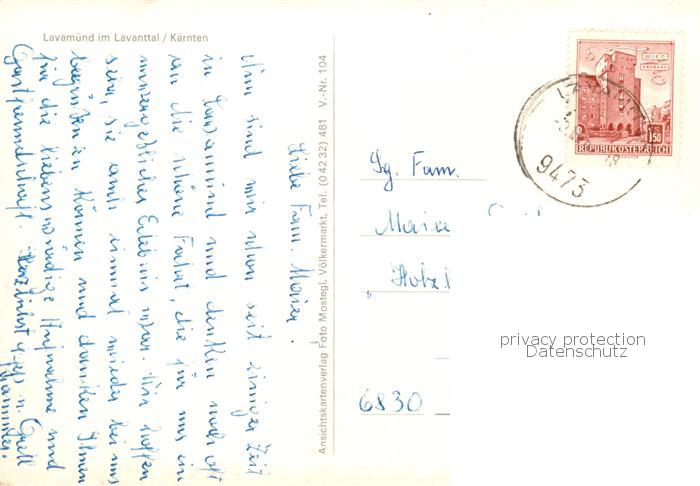 Lavamünd im Lavanttal / Kärnten
Liebe Fam. Maier.
Nun sind wir schon seit einiger Zeit
in Lavamünd und denken noch oft
an die schöne Fahrt, die für uns ein
unvergeßliches Erlebnis war. Wir hoffen
sehr, sie auch einmal wieder bei uns
begrüßen zu können und danken Ihnen
für die liebenswürdige Aufnahme und
Gastfreundschaft. Herzlichst u.
Ansichtskartenverlag Foto Mostegl, Völkermarkt, Tel. (0 42 32) 481 V.-Nr. 104
WIEN
ERDBERG
1.50
REPUBLIK ÖSTERREICH
9473
Sg. Fam.
Maie
Holz
6830
privacy protection
Datenschutz